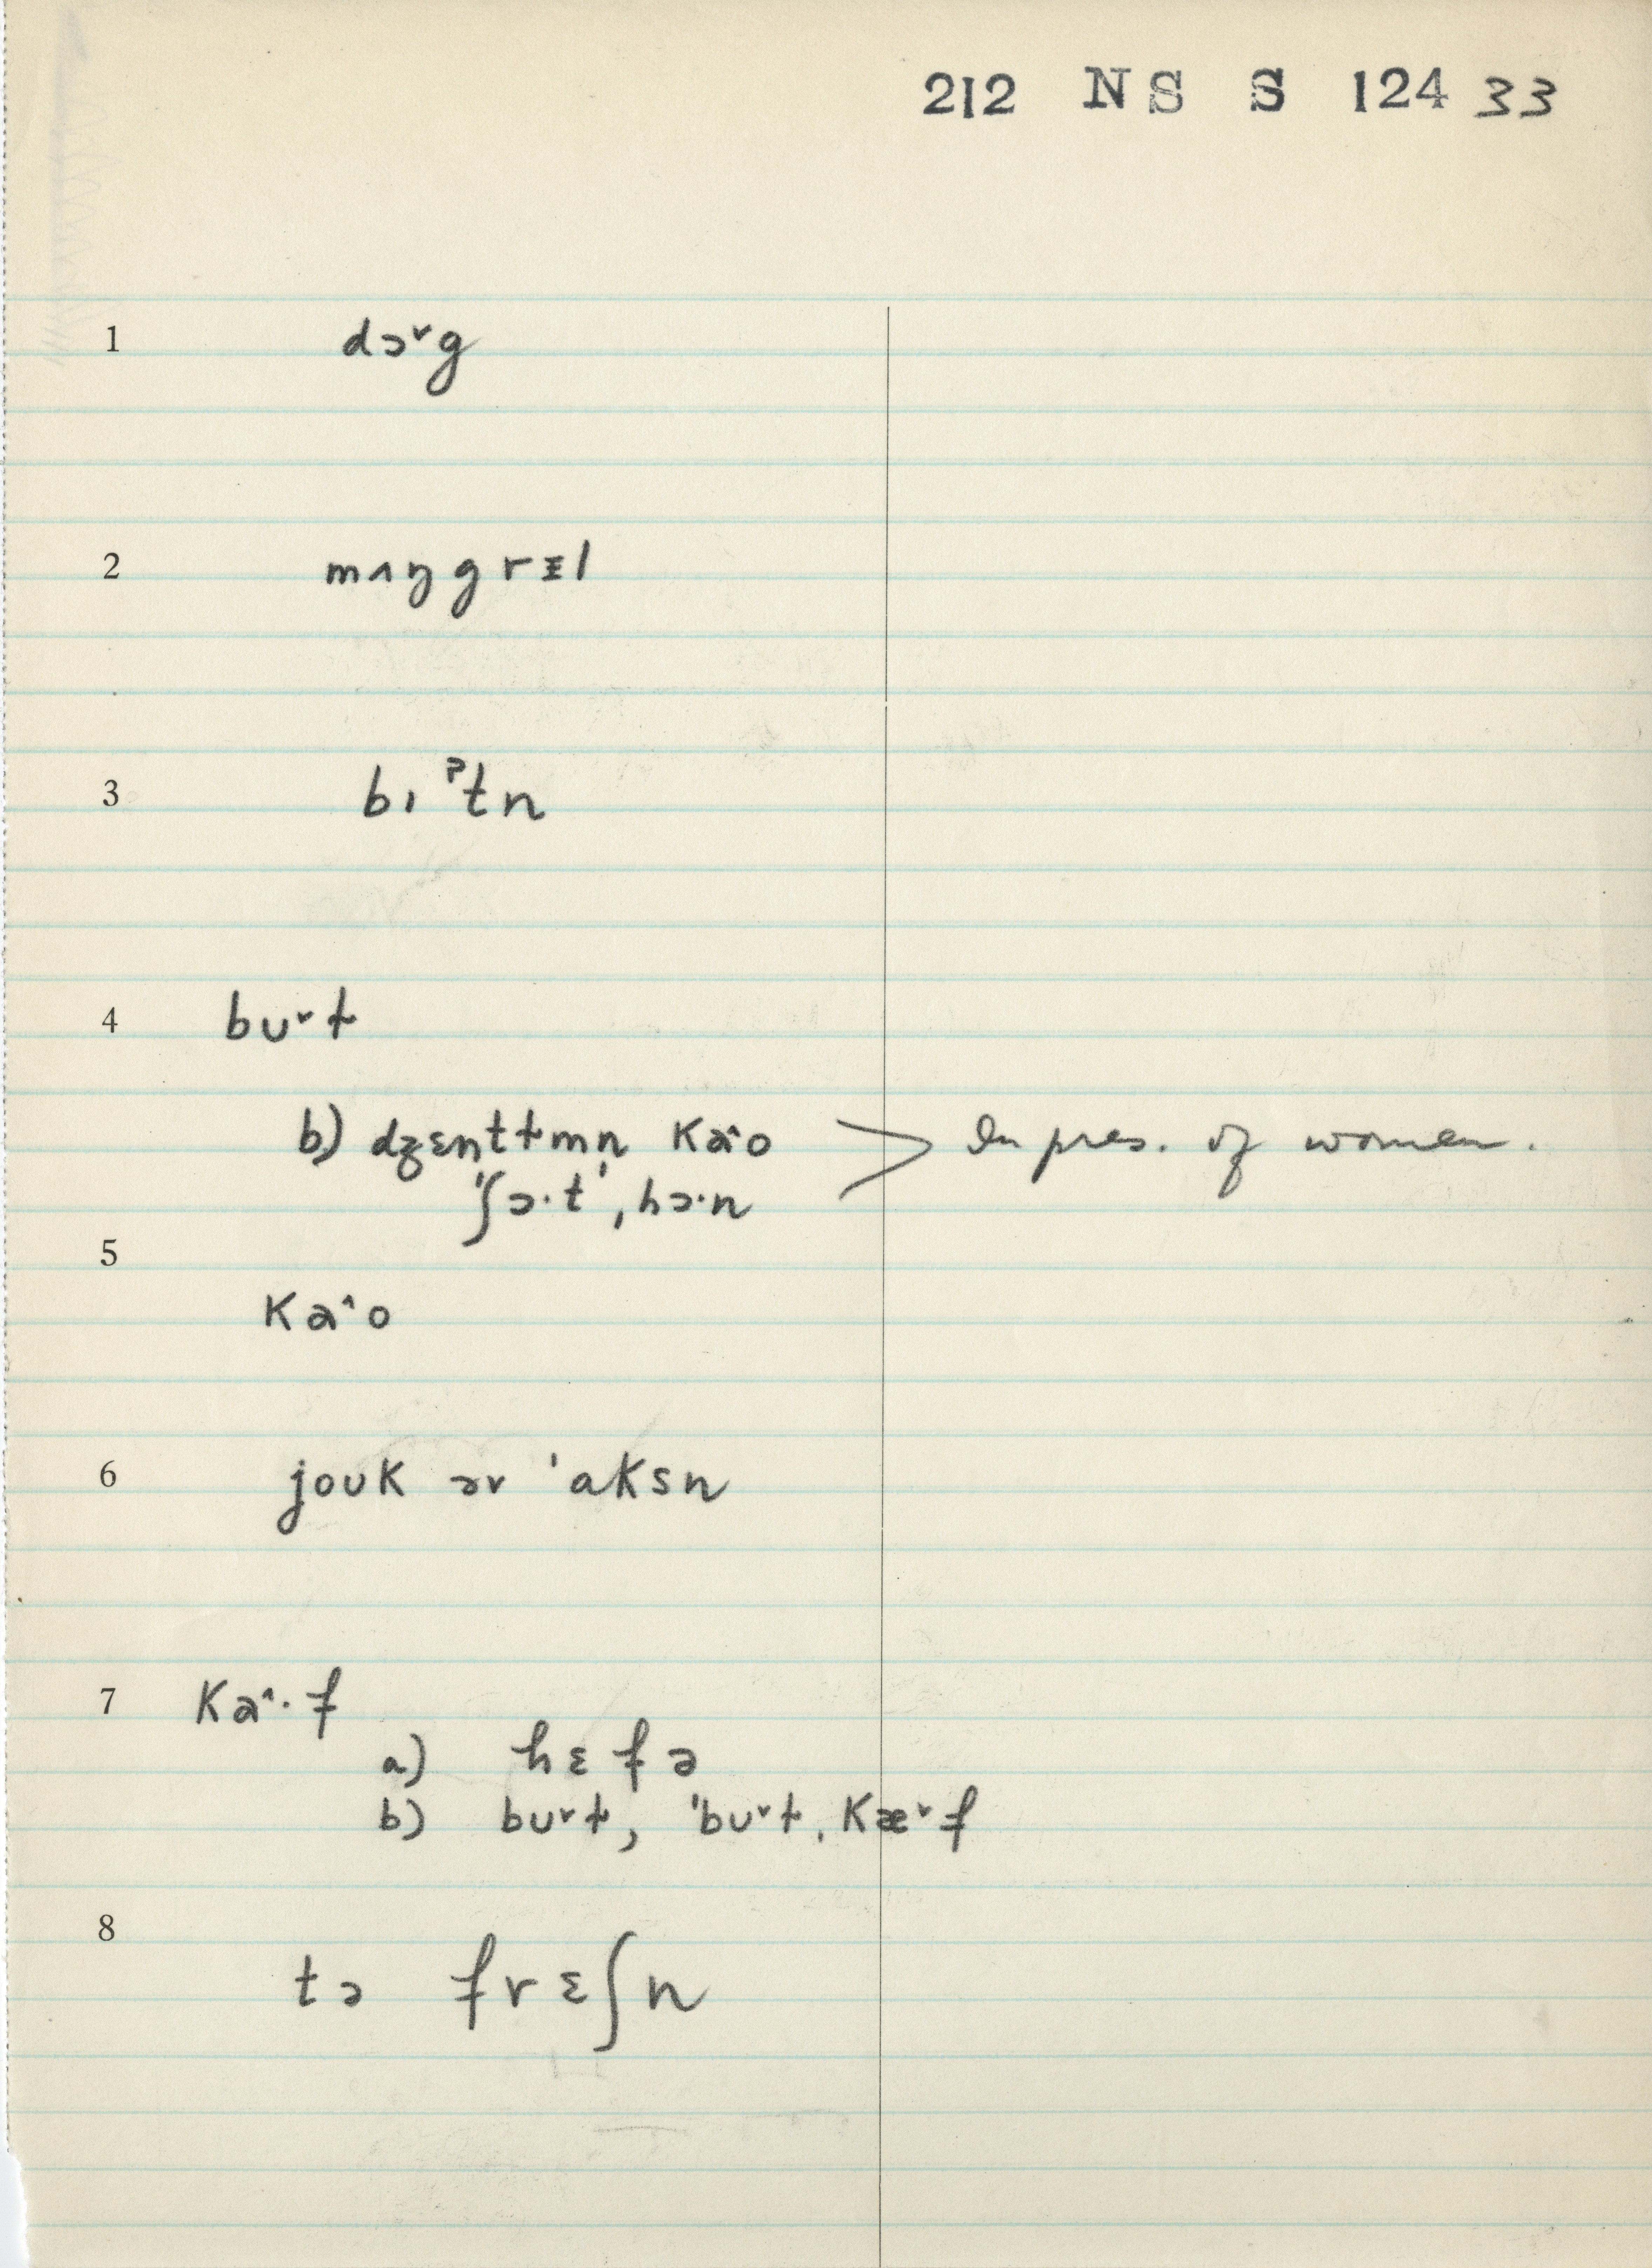 212 NS S 124 33
1 dɔ˅g
2 mʌŋgrɪl
3 bɪᵖtn
4 bu˅ɫ
b) dʒɛntɫmn ka^o > In pres. of women.
'ʃɔ·t', hɔ·n
5
ka^o
6 jouk ər 'aksn
7 ka^·f
a) hɛfə
b) bu˅ɫ, 'bu˅ɫ, kæ˅f
8
tə frɛʃn